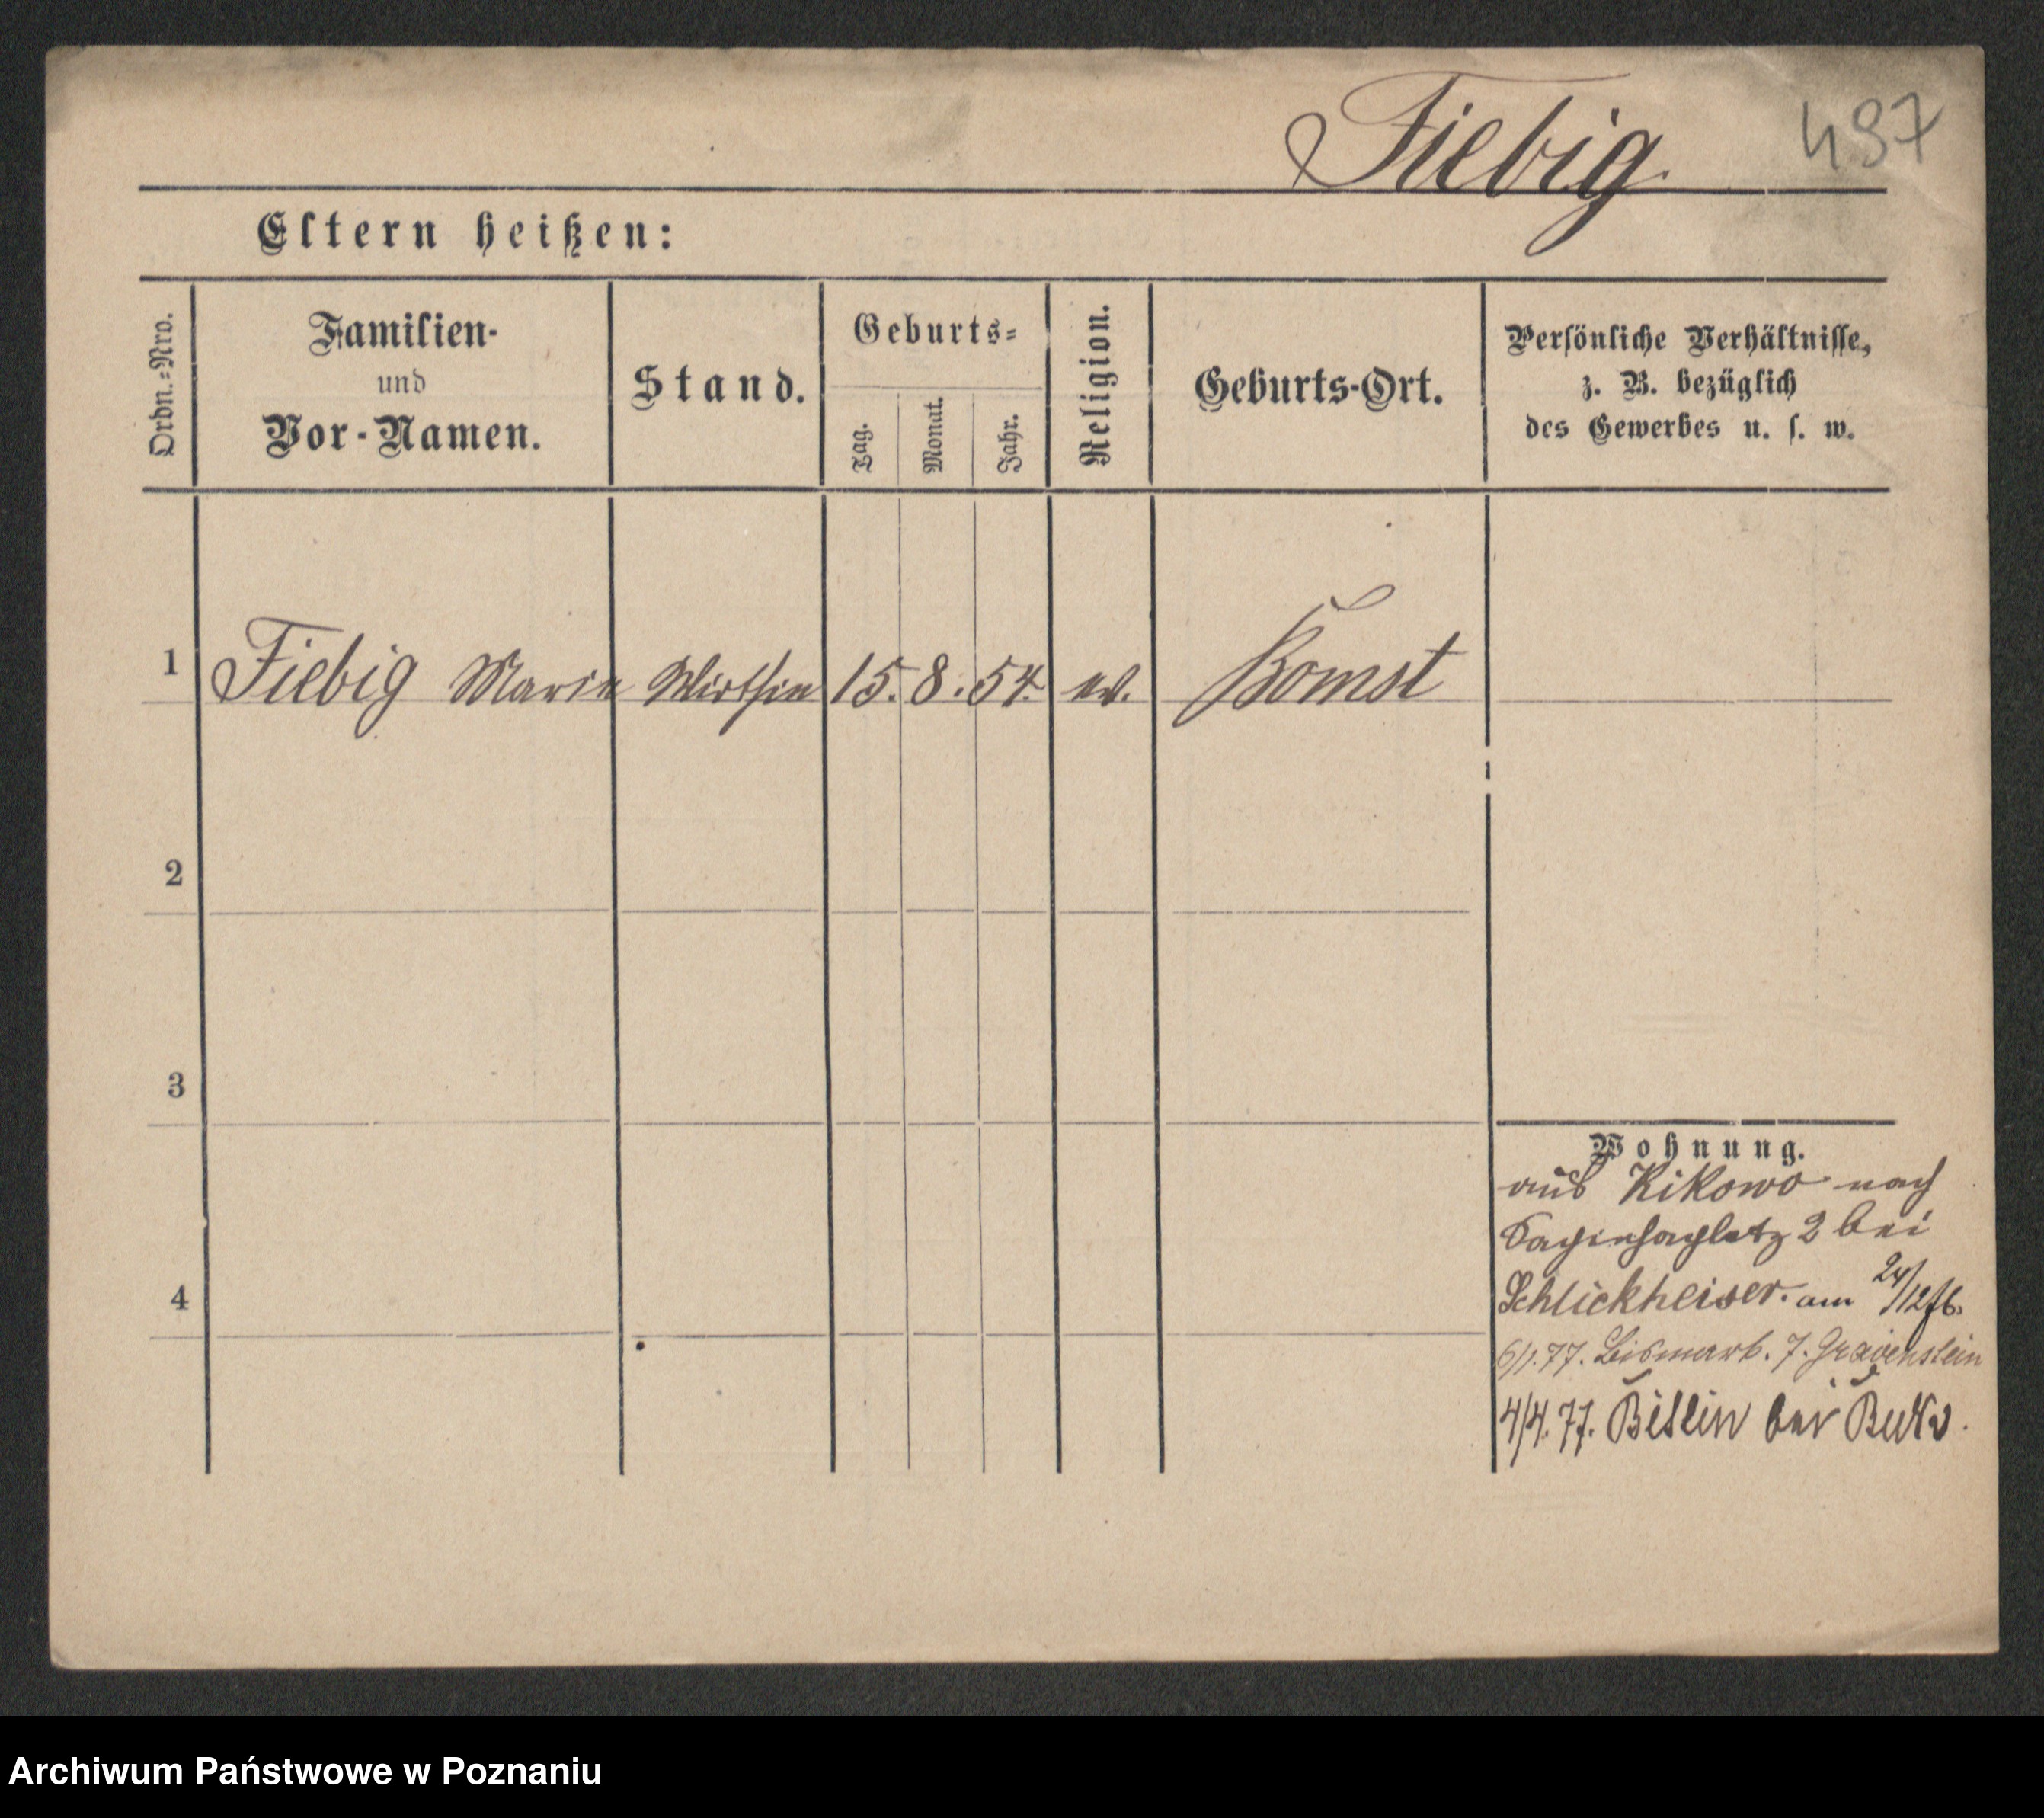 Fiebig. 497
Eltern heißen:
Ordn.=Nro.
Familien-
und
Vor-Namen.
Stand.
Geburts=
Tag.
Monat.
Jahr.
Religion.
Geburts-Ort.
Persönliche Verhältnisse,
z. B. bezüglich
des Gewerbes u. s. w.
1 Fiebig Marie Wirthin 15. 8. 54. ev. Bomst
2
3
4
Wohnung.
aus Kikowo nach
Sapiehaplatz 2 bei
Schlickheiser. am 24/12 76.
6/1. 77. Bismark. 7. Gravenstein
4/4. 77. bei Buk
Archiwum Państwowe w Poznaniu